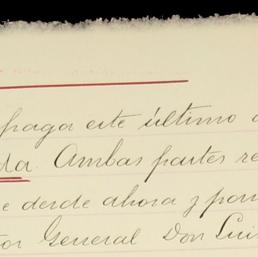 paga este último a
da. Ambas partes re
e desde ahora y por
tor General Don Luis